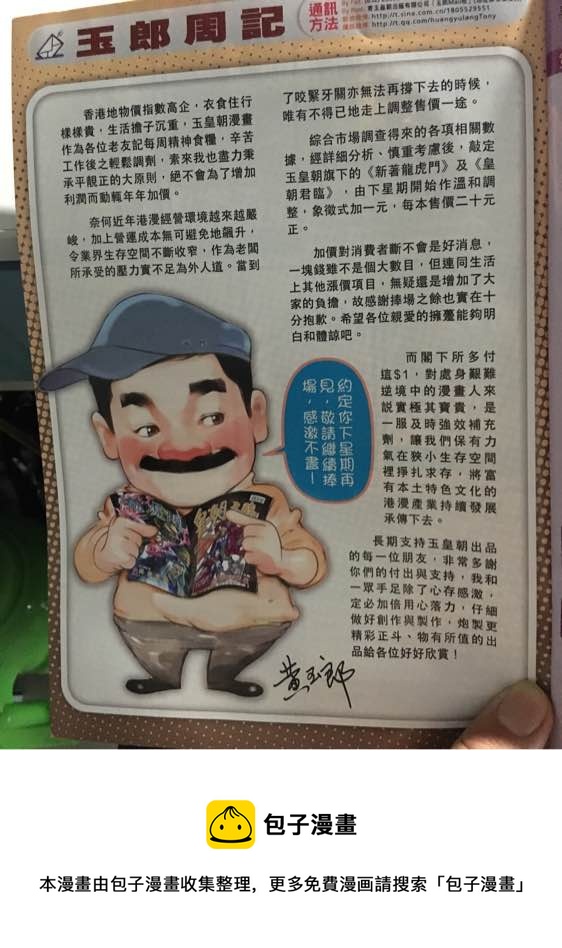 玉郎周記
通訊
方法
http://t.sina.com.cn/1805529551
http://t.qq.com/huangyulangTony
香港地物價指數高企，衣食住行
樣樣貴，生活擔子沉重，玉皇朝漫畫
作為各位老友記每周精神食糧，辛苦
工作後之輕鬆調劑，素來我也盡力秉
承平靚正的大原則，絕不會為了增加
利潤而動輒年年加價。
奈何近年港漫經營環境越來越嚴
峻，加上營運成本無可避免地飆升，
令業界生存空間不斷收窄，作為老闆
所承受的壓力實不足為外人道。當到
了咬緊牙關亦無法再撐下去的時候，
唯有不得已地走上調整售價一途。
綜合市場調查得來的各項相關數
據，經詳細分析、慎重考慮後，敲定
玉皇朝旗下的《新著龍虎門》及《皇
朝君臨》，由下星期開始作溫和調
整，象徵式加一元，每本售價二十元
正。
加價對消費者斷不會是好消息，
一塊錢雖不是個大數目，但連同生活
上其他漲價項目，無疑還是增加了大
家的負擔，故感謝捧場之餘也實在十
分抱歉。希望各位親愛的擁躉能夠明
白和體諒吧。
而閣下所多付
這$1，對處身艱難
逆境中的漫畫人來
説實極其寶貴，是
一服及時強效補充
劑，讓我們保有力
氣在狹小生存空間
裡掙扎求存，將富
有本土特色文化的
港漫產業持續發展
承傳下去。
長期支持玉皇朝出品
的每一位朋友，非常多謝
你們的付出與支持，我和
一眾手足除了心存感激，
定必加倍用心落力，仔細
做好創作與製作，炮製更
精彩正斗、物有所值的出
品給各位好好欣賞！
約定你下星期再
見，敬請繼續捧
場，感激不盡！
黃玉郎
包子漫畫
本漫畫由包子漫畫收集整理，更多免費漫画請搜索「包子漫畫」